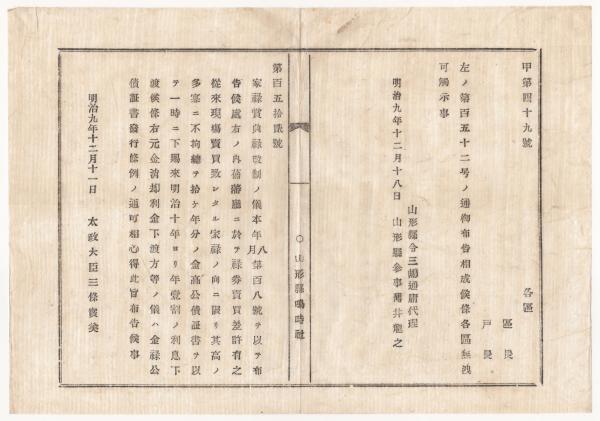 甲第四十九號
各區
區長
戸長
左ノ第百五十二号ノ通御布告相成候條各區無洩
可觸示事
明治九年十二月十八日
山形縣令三島通庸代理
山形縣參事薄井龍之
○山形縣鳴時社
第百五拾貳號
家祿賞典祿改制ノ儀本年八月第百八號ヲ以テ布
告候處右ノ內舊藩廳ニ於テ祿券賣買差許有之
從來現場賣買致シタル家祿ノ向ニ限リ其高ノ
多寡ニ不拘總テ拾ケ年分ノ金高公債証書ヲ以
テ一時ニ下賜來明治十年ヨリ年壹割ノ利息下
渡候條右元金消却利金下渡方等ノ儀ハ金祿公
債証書發行條例ノ通可相心得此旨布告候事
明治九年十二月十一日
太政大臣三條實美